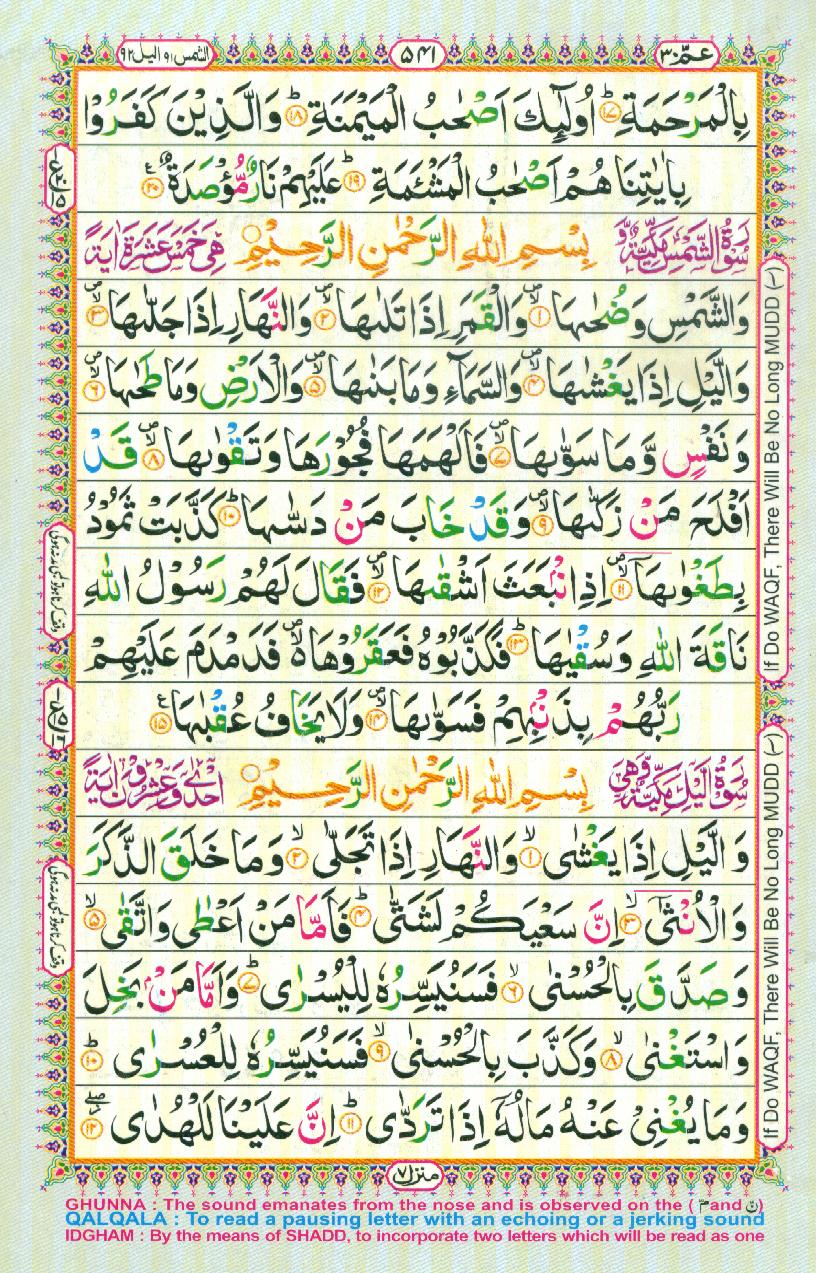 عمّ ٣٠
٥٤١
الشمس ٩١ والیل ٩٢
بِالْمَرْحَمَةِ ؕ﴿۱۷﴾ اُولٰٓئِكَ اَصْحٰبُ الْمَيْمَنَةِ ؕ﴿۱۸﴾ وَالَّذِيْنَ كَفَرُوْا
بِاٰيٰتِنَا هُمْ اَصْحٰبُ الْمَشْـَٔمَةِ ؕ﴿۱۹﴾ عَلَيْهِمْ نَارٌ مُّؤْصَدَةٌ ﴿۲۰﴾
سُوْرَةُ الشَّمْسِ مَكِّيَّةٌ وَّ بِسْمِ اللهِ الرَّحْمٰنِ الرَّحِيْمِ هِيَ خَمْسَ عَشْرَةَ اٰيَةً
وَالشَّمْسِ وَضُحٰىهَا ﴿۱﴾ وَالْقَمَرِ اِذَا تَلٰىهَا ﴿۲﴾ وَالنَّهَارِ اِذَا جَلّٰىهَا ﴿۳﴾
وَالَّيْلِ اِذَا يَغْشٰىهَا ﴿۴﴾ وَالسَّمَآءِ وَمَا بَنٰىهَا ﴿۵﴾ وَالْاَرْضِ وَمَا طَحٰىهَا ﴿۶﴾
وَنَفْسٍ وَّمَا سَوّٰىهَا ﴿۷﴾ فَاَلْهَمَهَا فُجُوْرَهَا وَتَقْوٰىهَا ﴿۸﴾ قَدْ
اَفْلَحَ مَنْ زَكّٰىهَا ﴿۹﴾ وَقَدْ خَابَ مَنْ دَسّٰىهَا ؕ﴿۱۰﴾ كَذَّبَتْ ثَمُوْدُ
بِطَغْوٰىهَا ﴿۱۱﴾ اِذِ انْۢبَعَثَ اَشْقٰىهَا ﴿۱۲﴾ فَقَالَ لَهُمْ رَسُوْلُ اللهِ
نَاقَةَ اللهِ وَسُقْيٰهَا ؕ﴿۱۳﴾ فَكَذَّبُوْهُ فَعَقَرُوْهَا فَدَمْدَمَ عَلَيْهِمْ
رَبُّهُمْ بِذَنْۢبِهِمْ فَسَوّٰىهَا ﴿۱۴﴾ وَلَا يَخَافُ عُقْبٰهَا ﴿۱۵﴾
سُوْرَةُ الَّيْلِ مَكِّيَّةٌ وَّهِيَ بِسْمِ اللهِ الرَّحْمٰنِ الرَّحِيْمِ اِحْدٰى وَعِشْرُوْنَ اٰيَةً
وَالَّيْلِ اِذَا يَغْشٰى ﴿۱﴾ وَالنَّهَارِ اِذَا تَجَلّٰى ﴿۲﴾ وَمَا خَلَقَ الذَّكَرَ
وَالْاُنْثٰٓى ﴿۳﴾ اِنَّ سَعْيَكُمْ لَشَتّٰى ؕ﴿۴﴾ فَاَمَّا مَنْ اَعْطٰى وَاتَّقٰى ﴿۵﴾
وَصَدَّقَ بِالْحُسْنٰى ﴿۶﴾ فَسَنُيَسِّرُهٗ لِلْيُسْرٰى ؕ﴿۷﴾ وَاَمَّا مَنْۢ بَخِلَ
وَاسْتَغْنٰى ﴿۸﴾ وَكَذَّبَ بِالْحُسْنٰى ﴿۹﴾ فَسَنُيَسِّرُهٗ لِلْعُسْرٰى ؕ﴿۱۰﴾
وَمَا يُغْنِيْ عَنْهُ مَالُهٗٓ اِذَا تَرَدّٰى ؕ﴿۱۱﴾ اِنَّ عَلَيْنَا لَلْهُدٰى ﴿۱۲﴾
If Do WAQF, There Will Be No Long MUDD (~)
If Do WAQF, There Will Be No Long MUDD (~)
منزل ٧
GHUNNA : The sound emanates from the nose and is observed on the ( مّ and نّ)
QALQALA : To read a pausing letter with an echoing or a jerking sound
IDGHAM : By the means of SHADD, to incorporate two letters which will be read as one